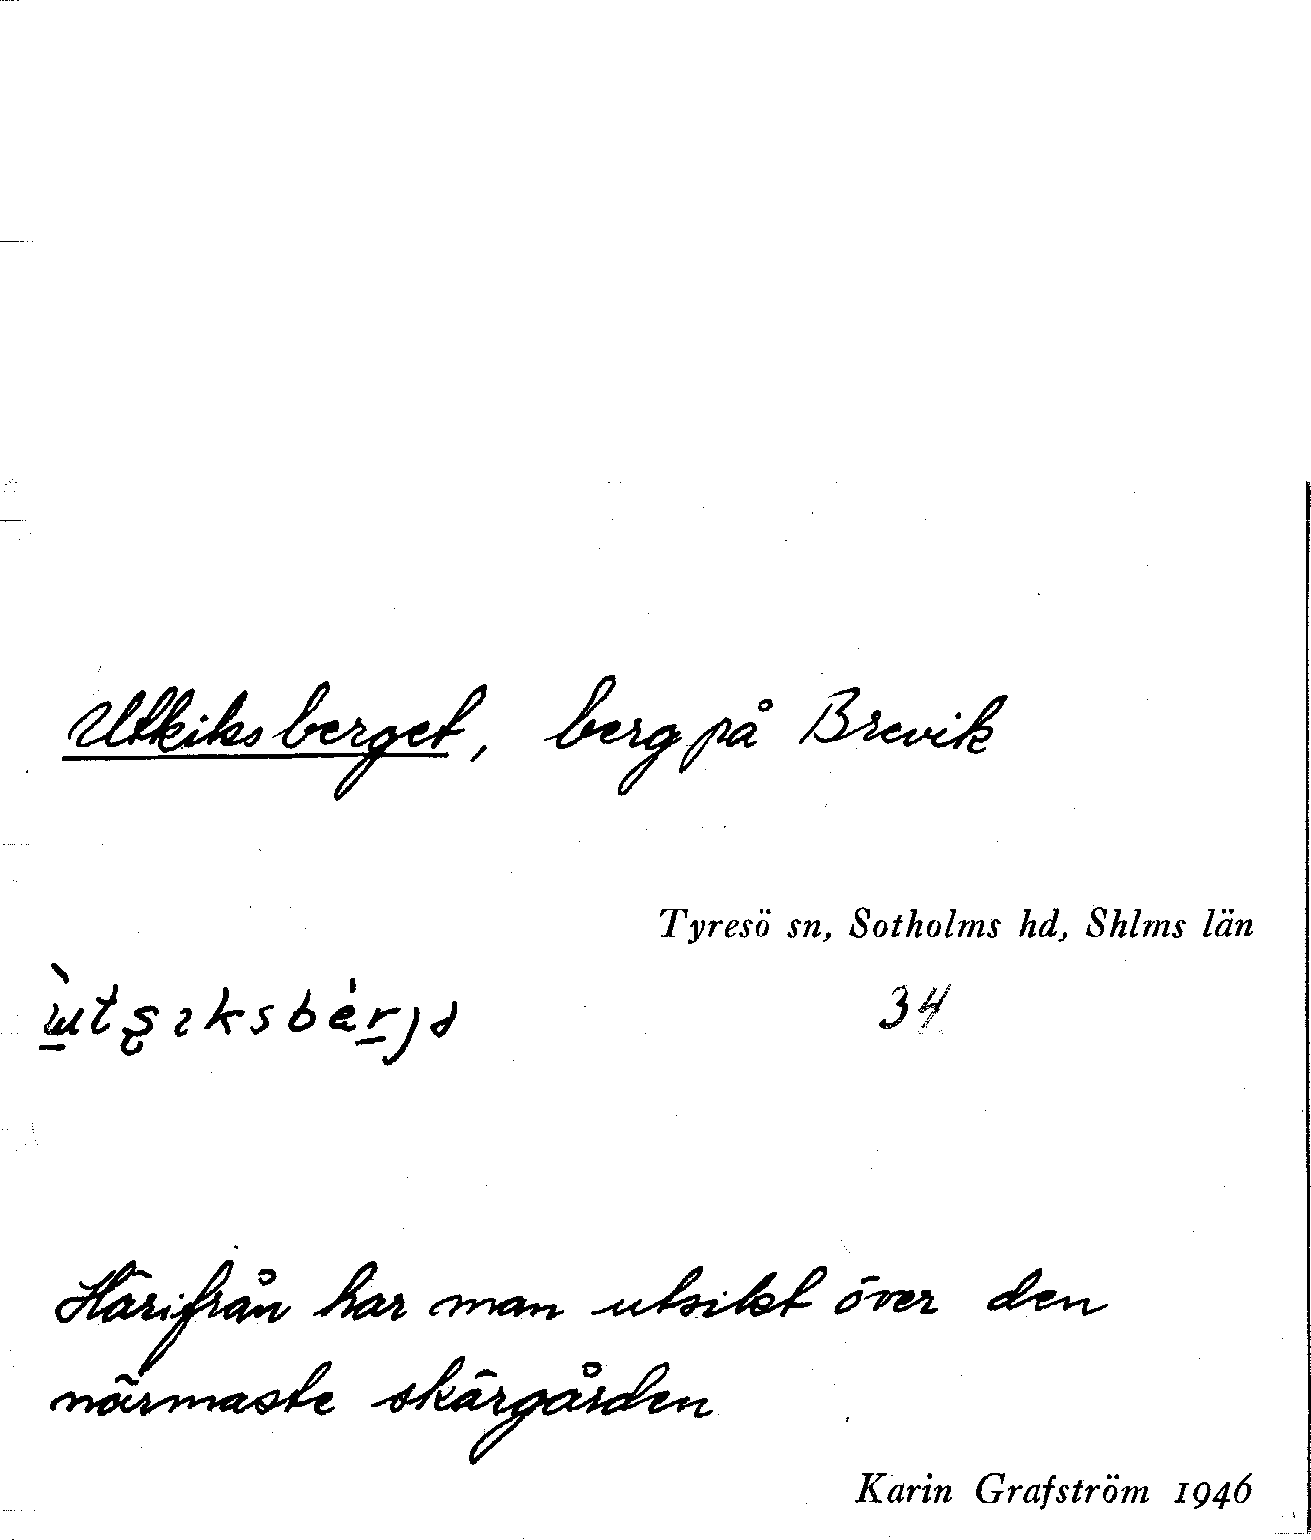 Utkiksberget, berg på Brevik
Tyresö sn, Sotholms hd, Shlms län
34
Härifrån har man utsikt över den
närmaste skärgården
Karin Grafström 1946